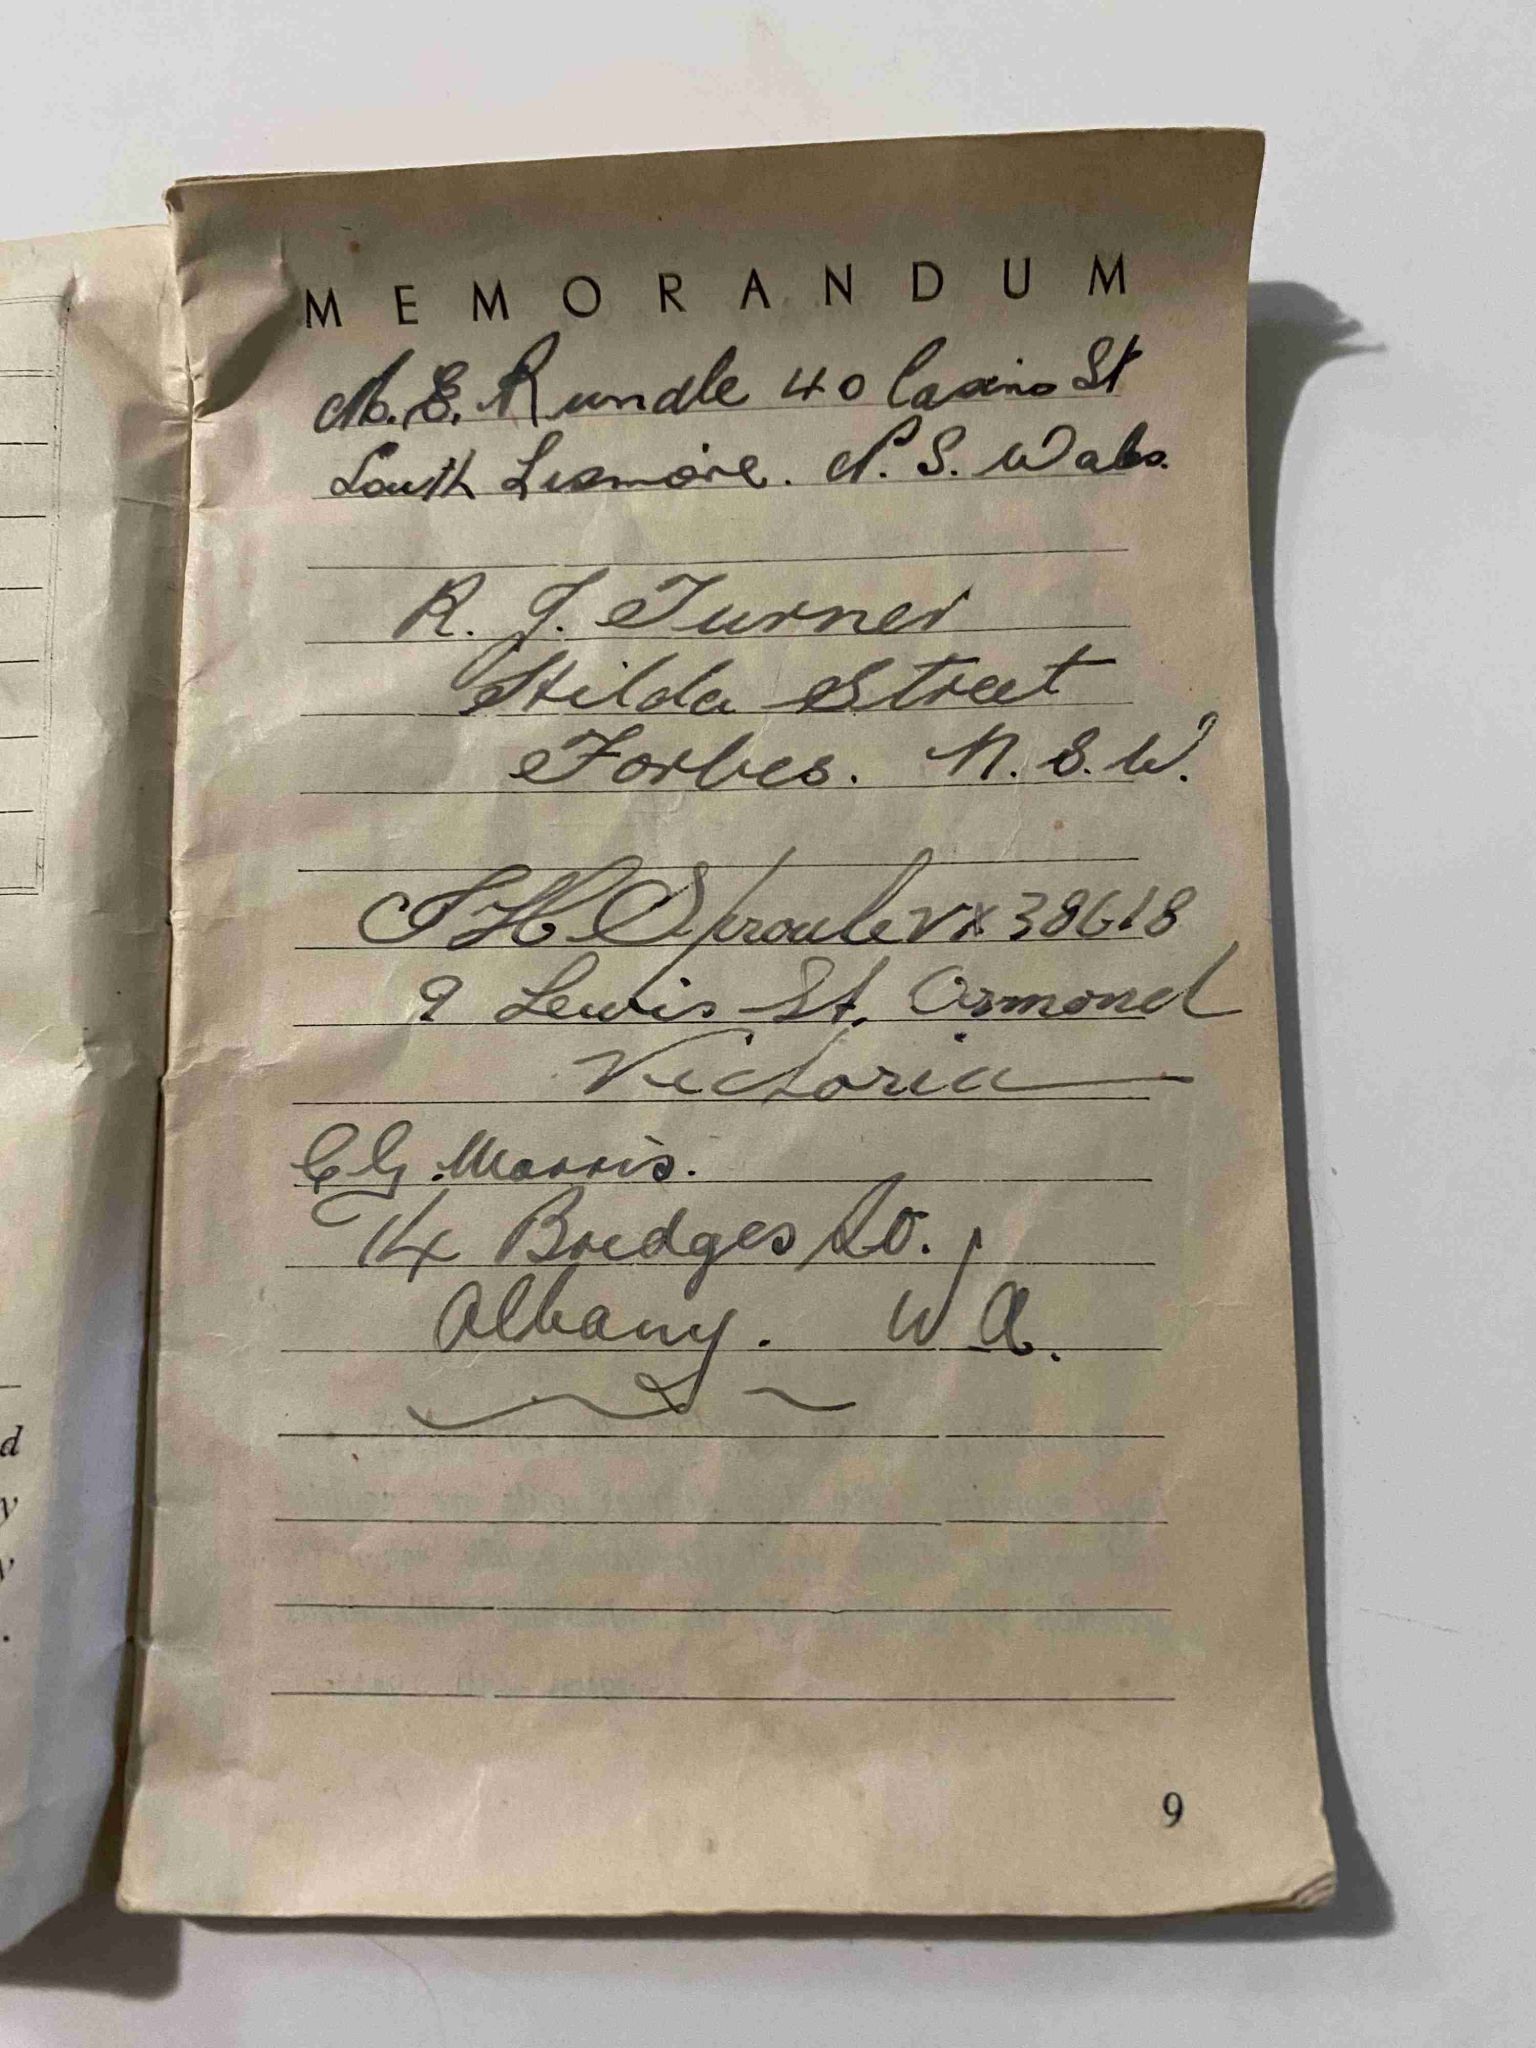 MEMORANDUM
N. E. Rundle 40 Casino St
South Lismore. N. S. Wales.
R. J. Turner
Hilda Street
Forbes. N. S. W.
Sproule VX 38618
9 Lewis St. Ormond
Victoria
Morris.
14 Bridges
Albany. W A.
9
d
y